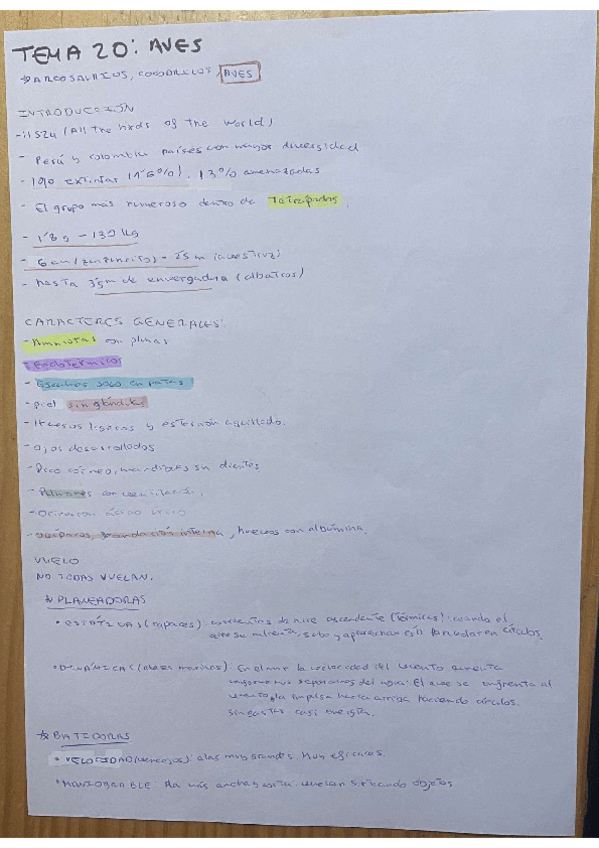 TEMA 20: AVES
ARCOSAURIOS, COCODRILOS, AVES
INTRODUCCIÓN
- 11524 (All the birds of the world)
- Perú y Colombia países con mayor diversidad
- 190 extintas (1'6%). 13% amenazadas
- El grupo más numeroso dentro de Tetrápodos.
- 1'8g - 130 Kg
- 6 cm (zunzuncito) - 2'5 m (avestruz)
- hasta 3'5m de envergadura (albatros)
CARACTERES GENERALES:
- Amniotas con plumas
- Endotérmicos
- Escamas solo en patas
- piel sin glándulas
- Huesos ligeros y esternón aquillado.
- ojos desarrollados
- Pico córneo, mandíbulas sin dientes
- Pulmones con
- Orina con ácido úrico
- ovíparos, fecundación interna, huevos con albúmina.
VUELO
NO TODAS VUELAN.
PLANEADORAS
• ESTÁTICAS (rapaces): corrientes de aire ascendente (térmicas): cuando el
aire se calienta, sube y aprovechan en círculos.
• DINÁMICAS (aves marinas): En el mar la velocidad del viento aumenta
según nos separamos del agua. El ave se enfrenta al
viento, la impulsa hacia arriba haciendo círculos.
sin gastar casi energía.
BATIDORAS
• VELOCIDAD (vencejos): alas muy grandes. Muy eficaces.
• MANIOBRABLE: Ala más ancha y corta: vuelan sorteando objetos